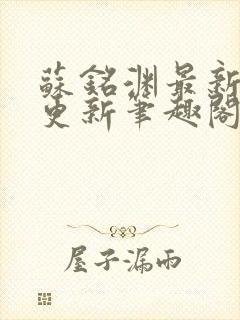 蘇銘淵最新
更新筆趣閣
屋子漏雨